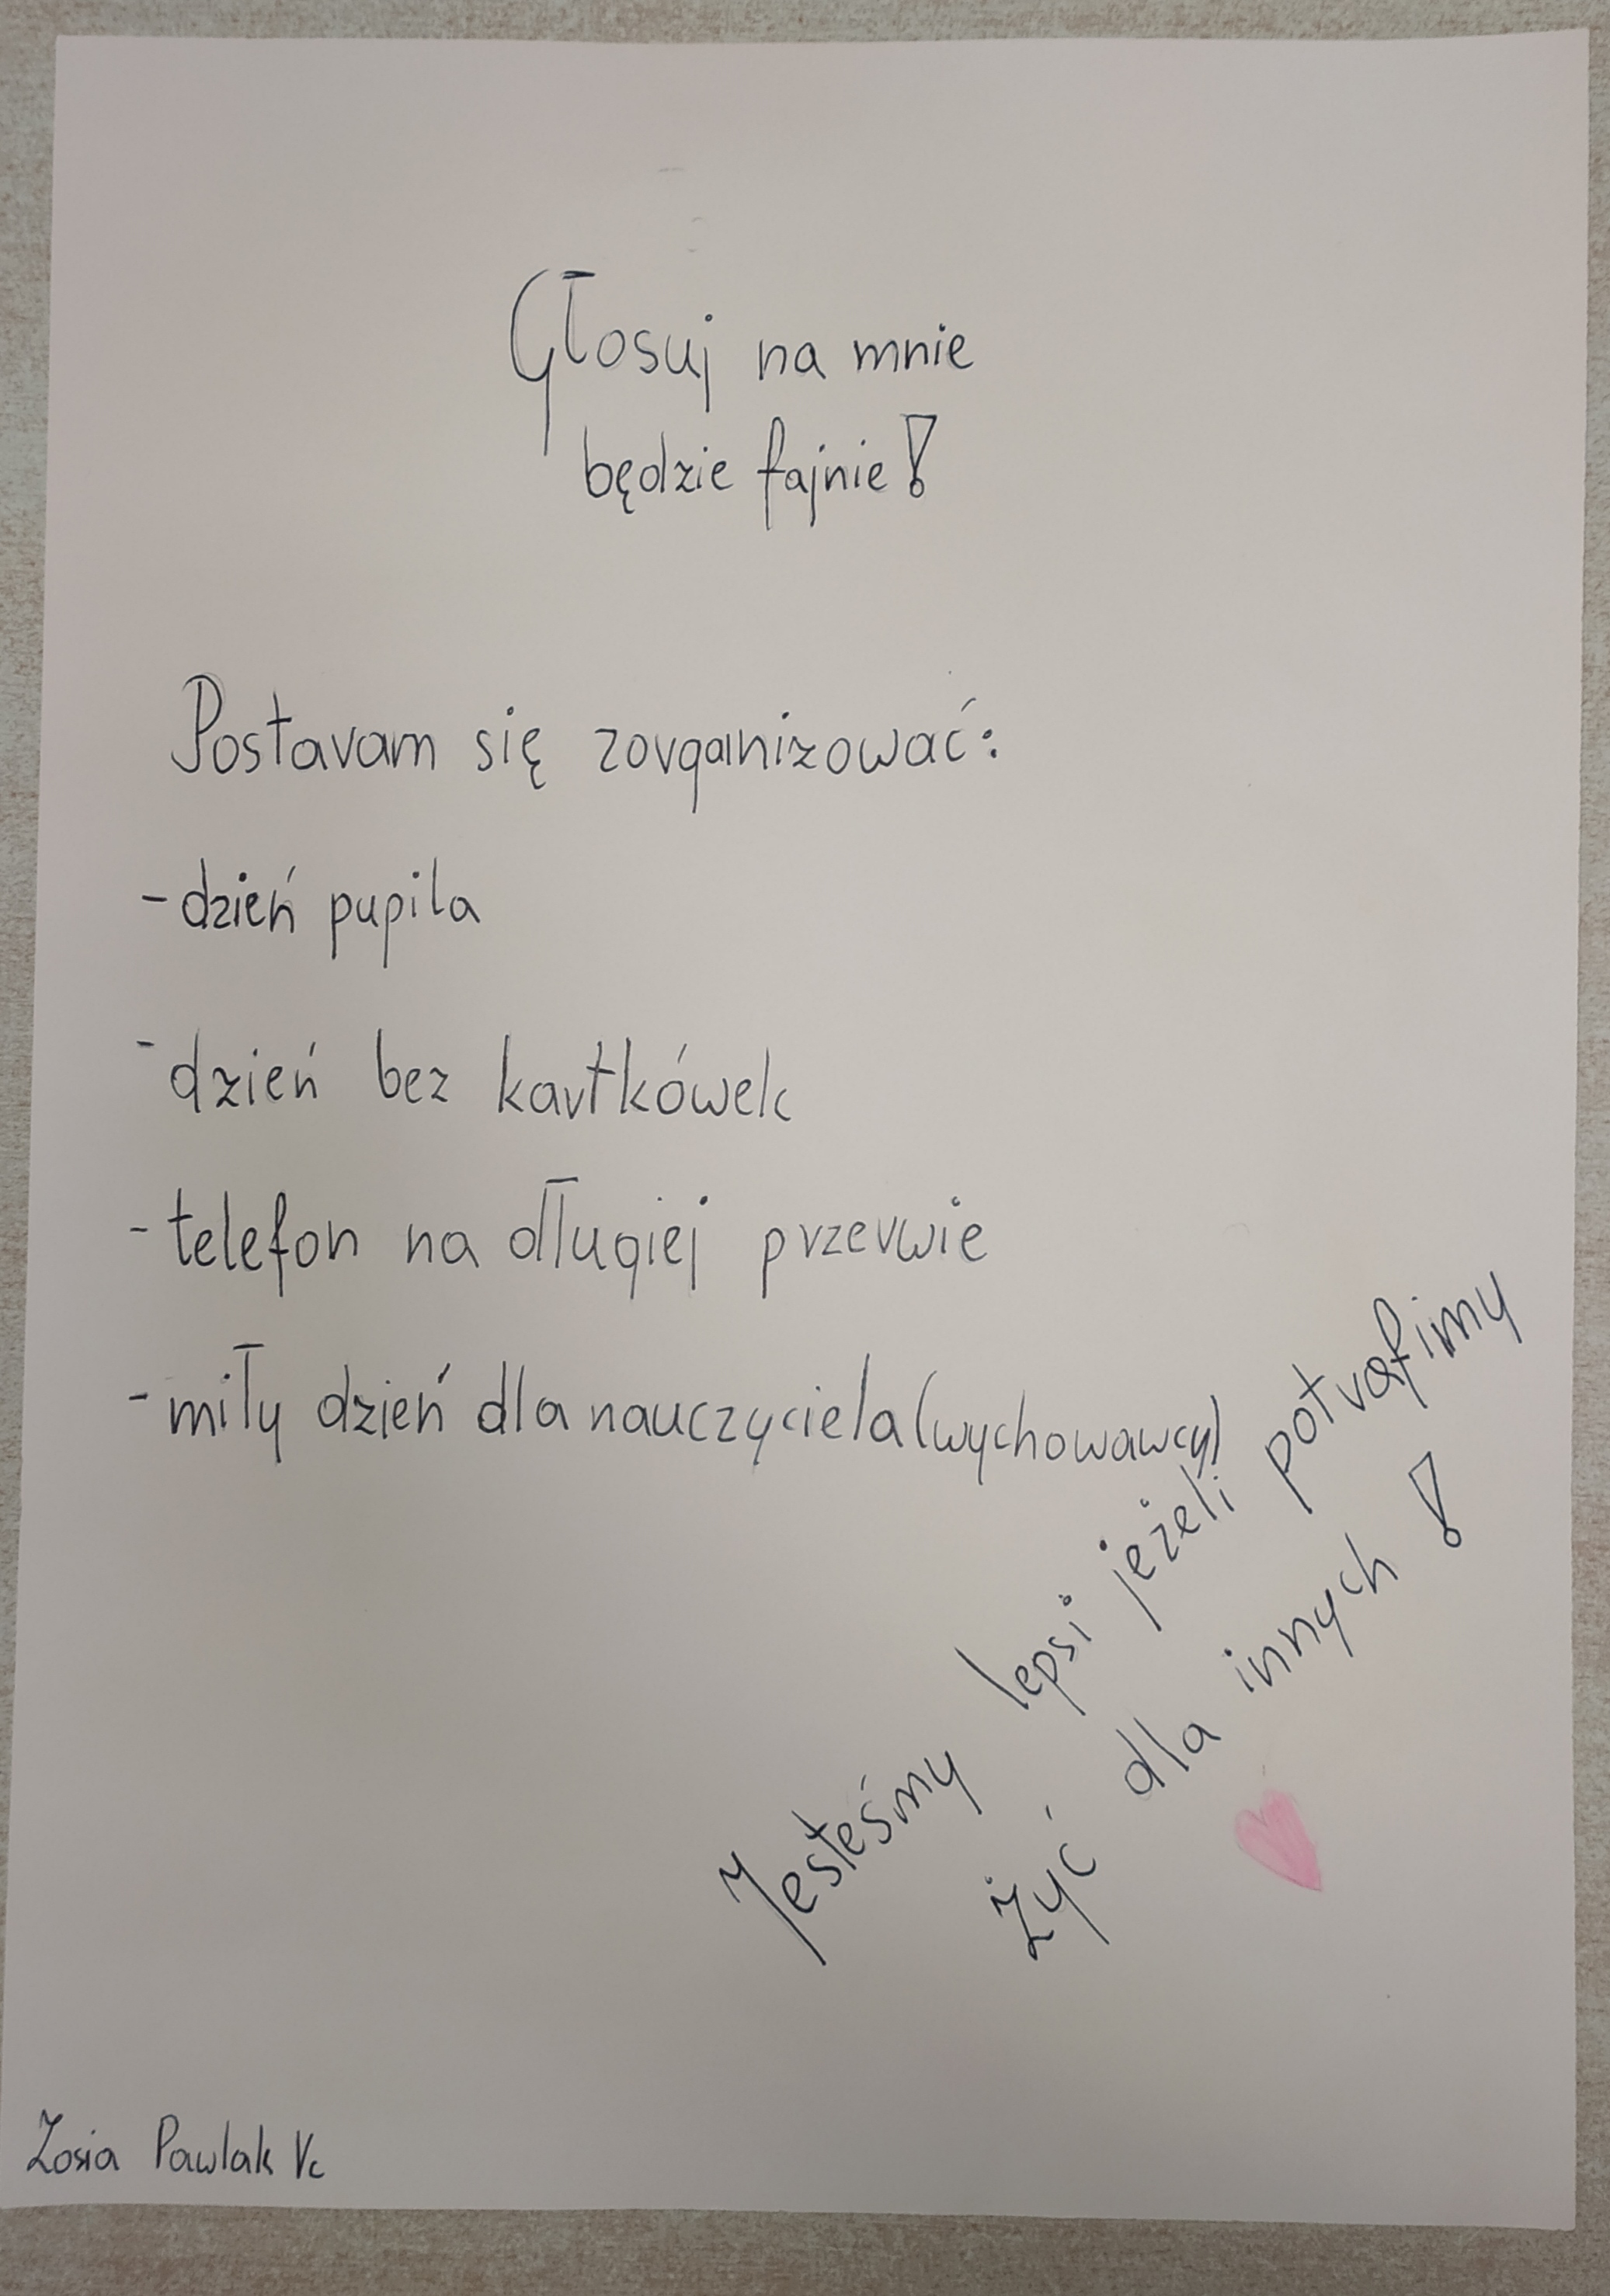 Głosuj na mnie
będzie fajnie!
Postaram się zorganizować:
- dzień pupila
- dzień bez kartkówek
- telefon na długiej przerwie
- miły dzień dla nauczyciela (wychowawcy)
Jesteśmy lepsi jeżeli potrafimy
żyć dla innych!
Zosia Pawlak Vc